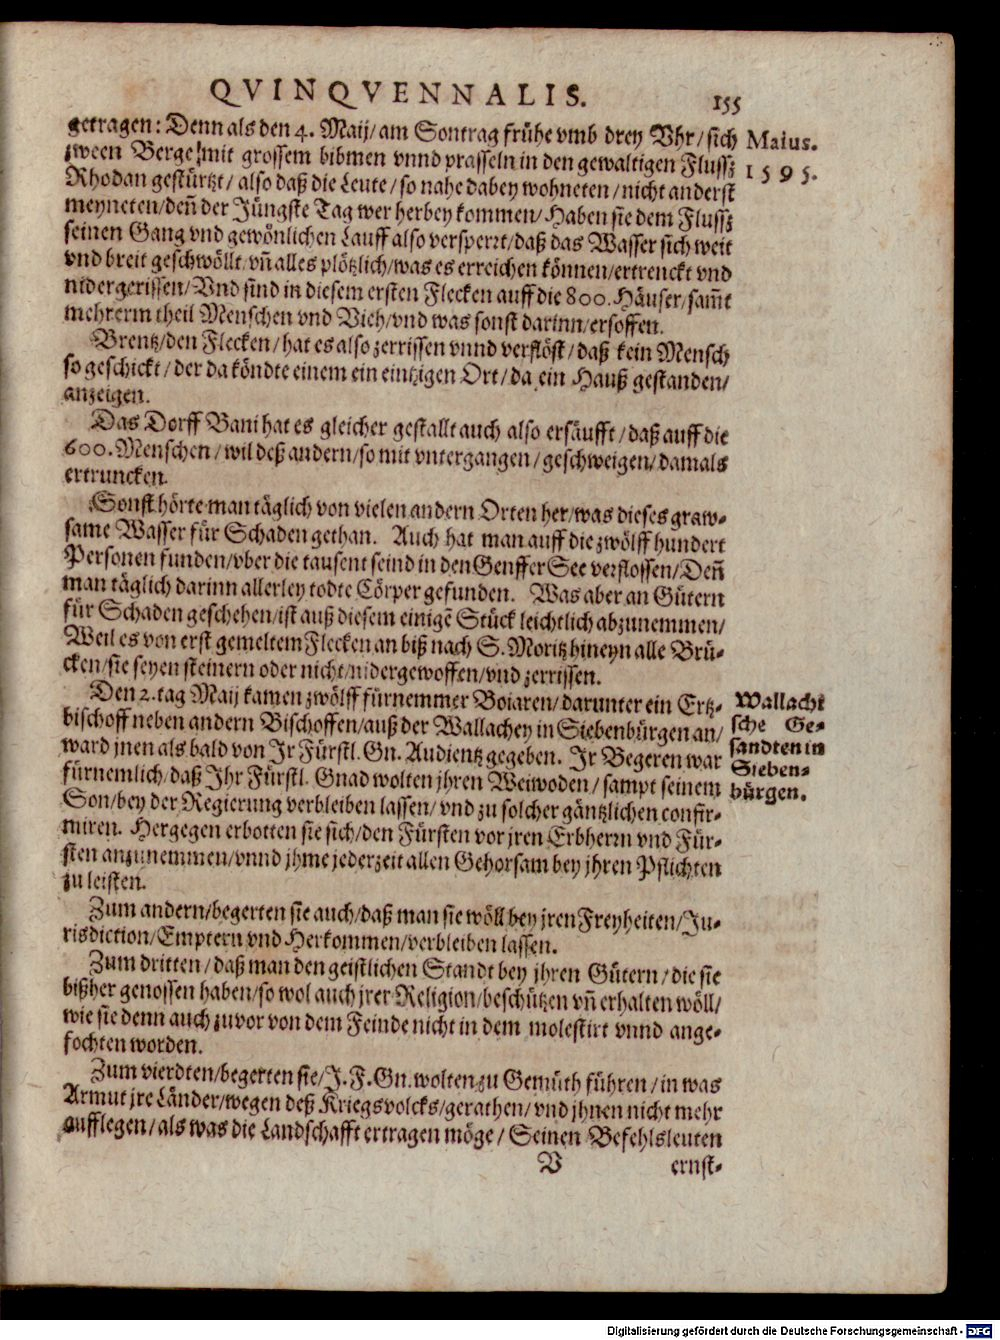 QVINQVENNALIS. 155
getragen: Denn als den 4. Maij/ am Sontag frühe vmb drey Vhr/ sich
zween Berge/mit grossem bibmen vnnd prasseln in den gewaltigen Flussz
Rhodan gestürtzt/ also daß die Leute/ so nahe dabey wohneten/ nicht anderst
meyneten/ deñ der Jüngste Tag wer herbey kommen/ Haben sie dem Flussz
seinen Gang vnd gewönlichen Lauff also versperrt/ daß das Wasser sich weit
vnd breit geschwöllt/ vñ alles plötzlich/ was es erreichen können/ ertrenckt vnd
nidergerissen/ Vnd sind in diesem ersten Flecken auff die 800. Häuser/ sam̃t
mehrerm theil Menschen vnd Vieh/ vnd was sonst darinn/ ersoffen.
Brentz/ den Flecken/ hat es also zerrissen vnnd verflöst/ daß kein Mensch
so geschickt/ der da köndte einem ein eintzigen Ort/ da ein Hauß gestanden/
anzeigen.
Das Dorff Bani hat es gleicher gestallt auch also ersäufft/ daß auff die
600. Menschen/ wil deß andern/ so mit vntergangen/ geschweigen/ damals
ertruncken.
Sonst hörte man täglich von vielen andern Orten her/ was dieses graw-
same Wasser für Schaden gethan. Auch hat man auff die zwölff hundert
Personen funden/ vber die tausent seind in den Genffer See verflossen/ Deñ
man täglich darinn allerley todte Cörper gefunden. Was aber an Gütern
für Schaden geschehen/ ist auß diesem einigẽ Stück leichtlich abzunemmen/
Weil es von erst gemeltem Flecken an biß nach S. Moritz hineyn alle Brü-
cken/ sie seyen steinern oder nicht/ nidergewoffen/ vnd zerrissen.
Den 2. tag Maij kamen zwölff fürnemmer Boiaren/ darunter ein Ertz-
bischoff neben andern Bischoffen/ auß der Wallachey in Siebenbürgen an/
ward jnen als bald von Jr Fürstl. Gn. Audientz gegeben. Jr Begeren war
fürnemlich/ daß Jhr Fürstl. Gnad wolten jhren Weiwoden/ sampt seinem
Son/ bey der Regierung verbleiben lassen/ vnd zu solcher gäntzlichen confir-
miren. Hergegen erbotten sie sich/ den Fürsten vor jren Erbherrn vnd Für-
sten anzunemmen/ vnnd jhme jederzeit allen Gehorsam bey jhren Pflichten
zu leisten.
Zum andern/ begerten sie auch/ daß man sie wöll bey jren Freyheiten/ Ju-
risdiction/ Emptern vnd Herkommen/ verbleiben lassen.
Zum dritten/ daß man den geistlichen Standt bey jhren Gütern/ die sie
bißher genossen haben/ so wol auch jrer Religion/ beschützen vñ erhalten wöll/
wie sie denn auch zuvor von dem Feinde nicht in dem molestirt vnnd ange-
fochten worden.
Zum vierdten/ begerten sie/ J. F. Gn. wolten zu Gemüth führen/ in was
Armut jre Länder/ wegen deß Kriegsvolcks/ gerathen/ vnd jhnen nicht mehr
aufflegen/ als was die Landschafft ertragen möge/ Seinen Befehlsleuten
V ernst-
Maius.
1595.
Wallachi
sche Ge-
sandten in
Sieben-
bürgen.
Digitalisierung gefördert durch die Deutsche Forschungsgemeinschaft - DFG